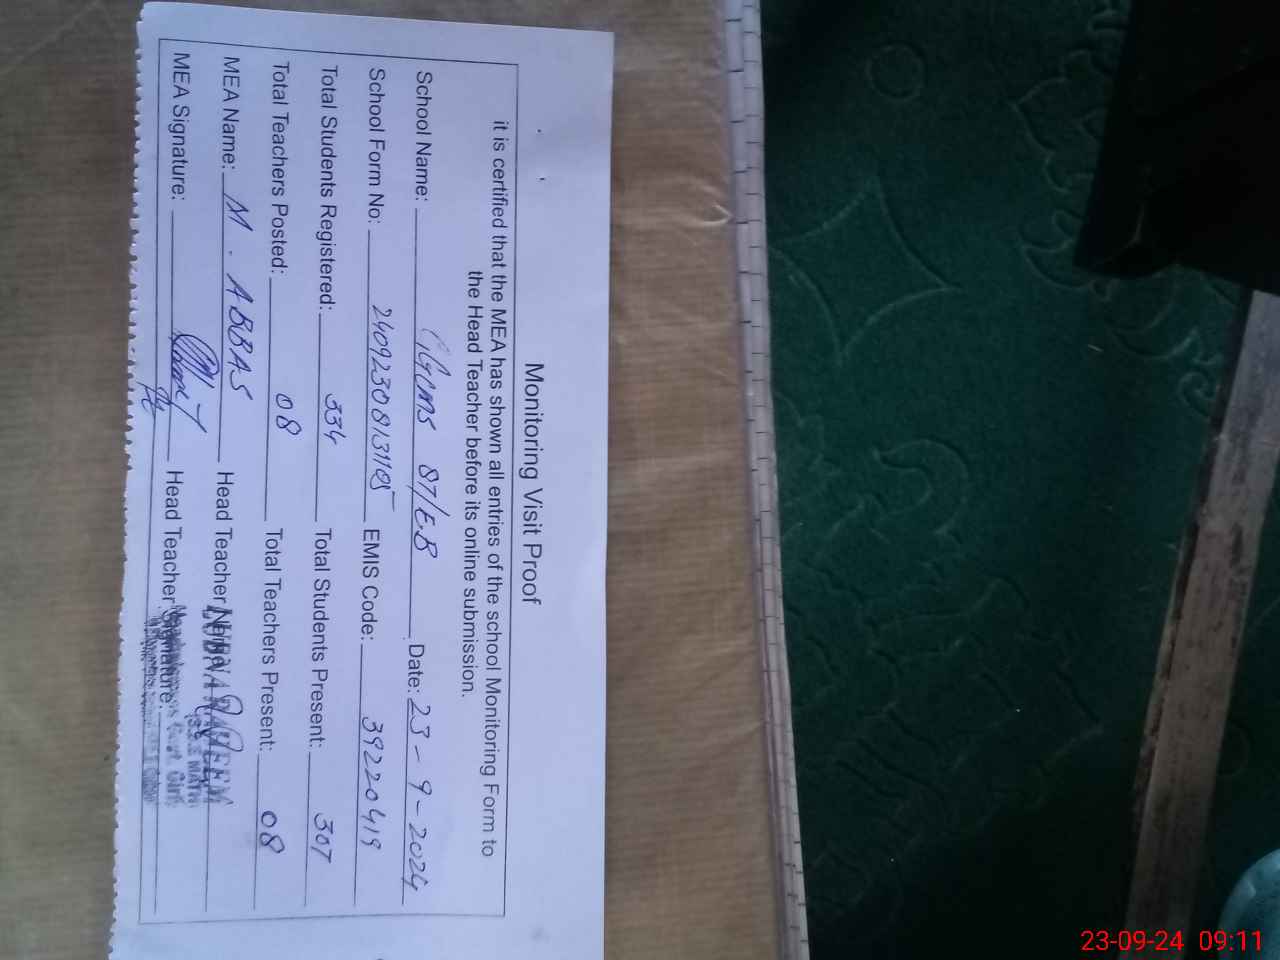 Monitoring Visit Proof
it is certified that the MEA has shown all entries of the school Monitoring Form to
the Head Teacher before its online submission.
School Name: GGCMS 87/E.B Date: 23-9-2024
School Form No: 24092308131105 EMIS Code: 39220419
Total Students Registered: 334 Total Students Present: 307
Total Teachers Posted: 08 Total Teachers Present: 08
MEA Name: M. ABBAS Head Teacher Name
MEA Signature: Head Teacher Signature:
23-09-24 09:11